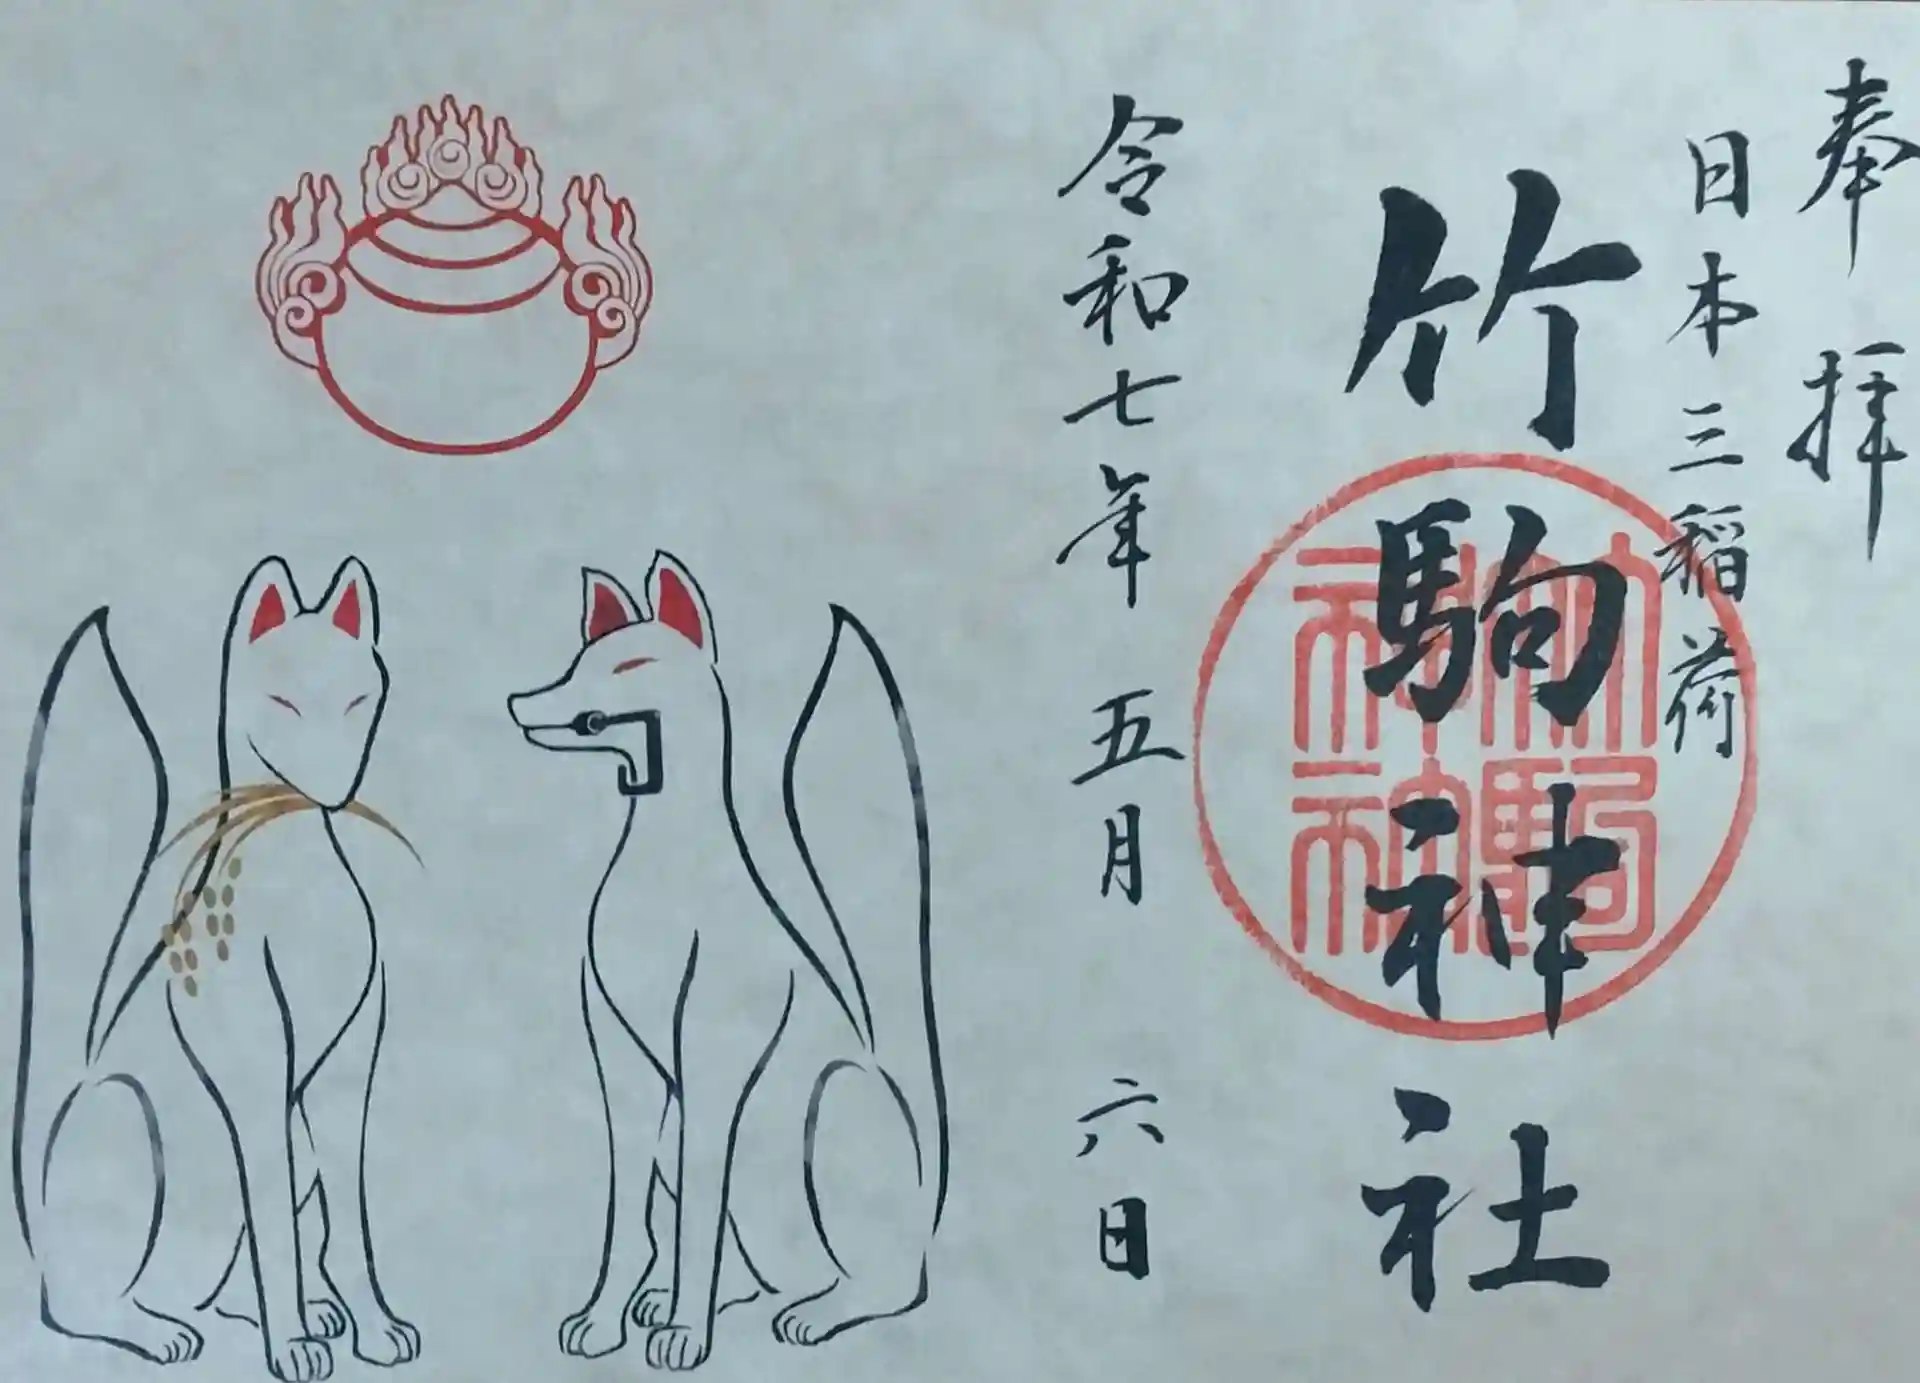 奉拝
日本三稲荷
竹駒神社
竹駒神社
令和七年 五月 六日